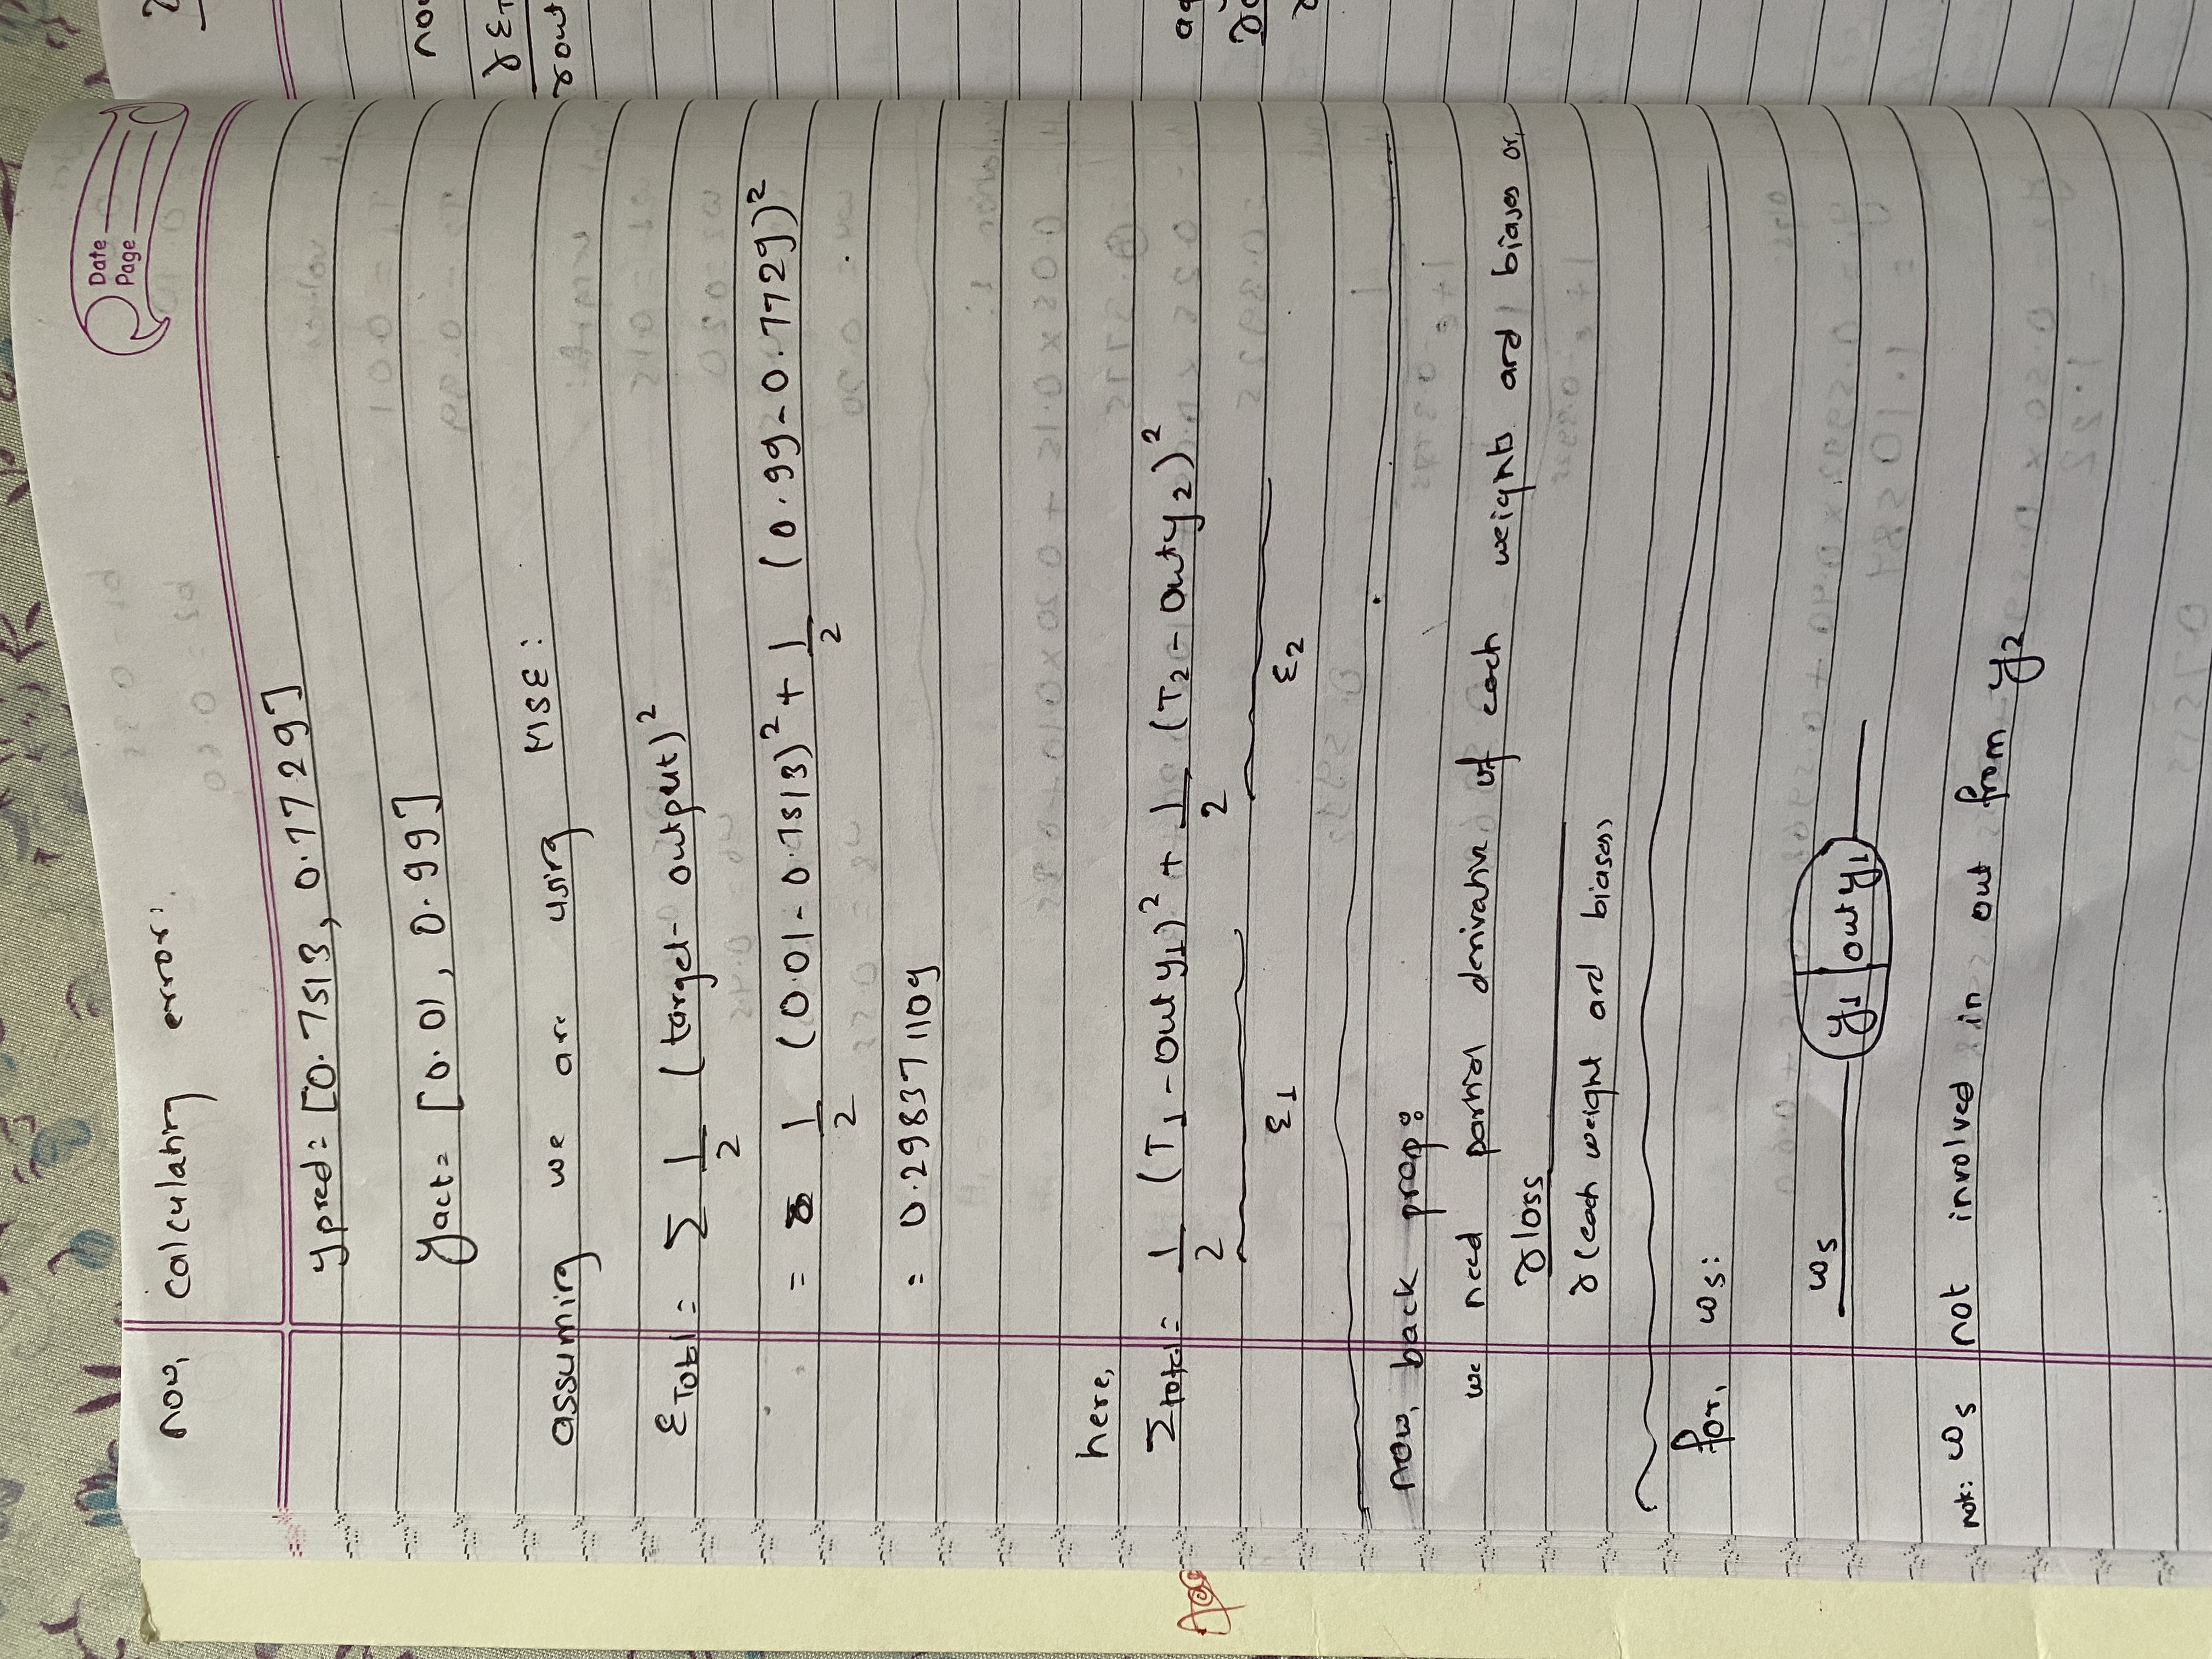 Date
Page
now, calculating error:
ypred = [0.7513, 0.7729]
yact = [0.01, 0.99]
assuming we are using MSE:
ε Total = Σ 1/2 (target - output)²
= 1/2 (0.01 - 0.7513)² + 1/2 (0.99 - 0.7729)²
= 0.298371109
here,
Σtotal = 1/2 (T1 - out y1)² + 1/2 (T2 - out y2)²
ε1 ε2
now, back prop:
we need partial derivative of each weights and biases or,
∂loss
∂(each weight and biases)
for, ω5:
ω5 y1 | out y1
not: ω5 not involved in out from y2